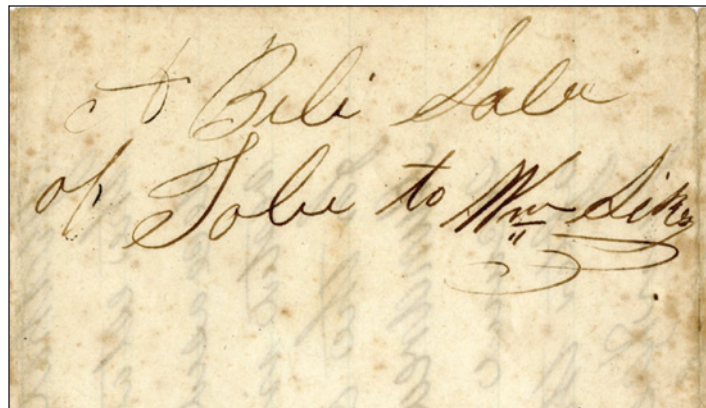 A Bill Sale
of Tobe to Wm Sikes